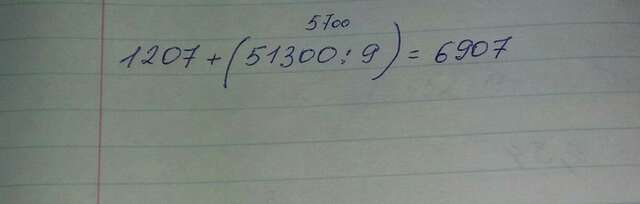 5700
1207+(51300:9)=6907